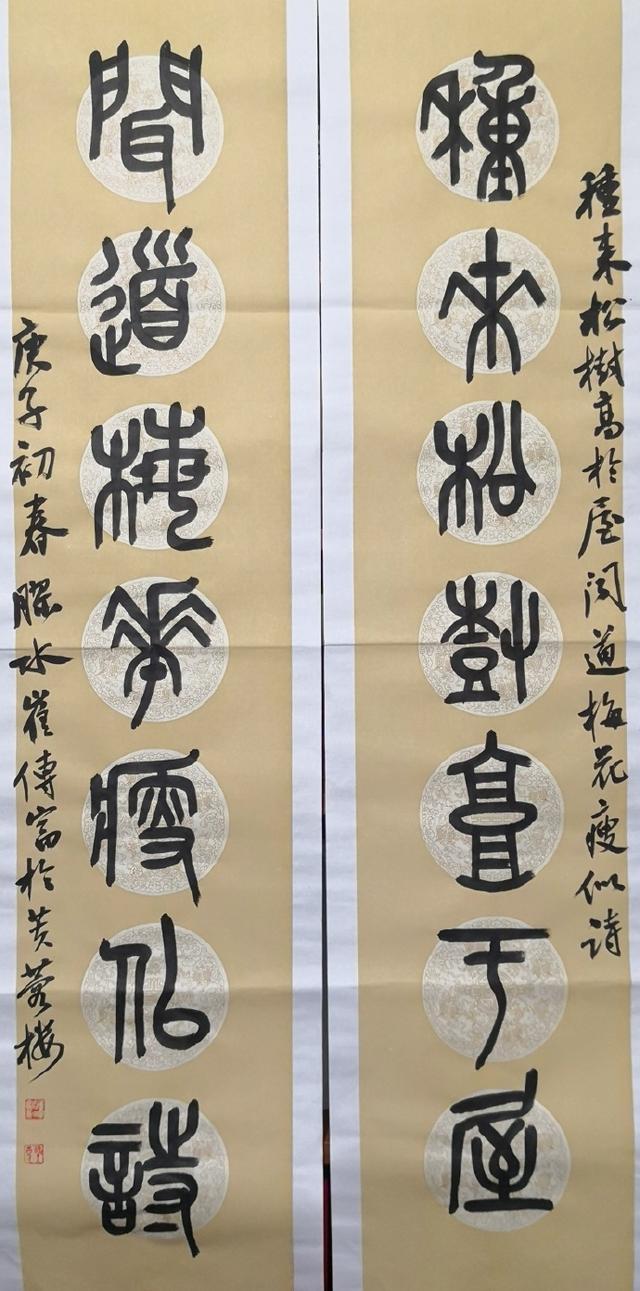 種来松樹高於屋闻道梅花瘦似詩
種来松樹高于屋
聞道梅華瘦似詩
庚子初春膠水崔傳富於芙蓉楼